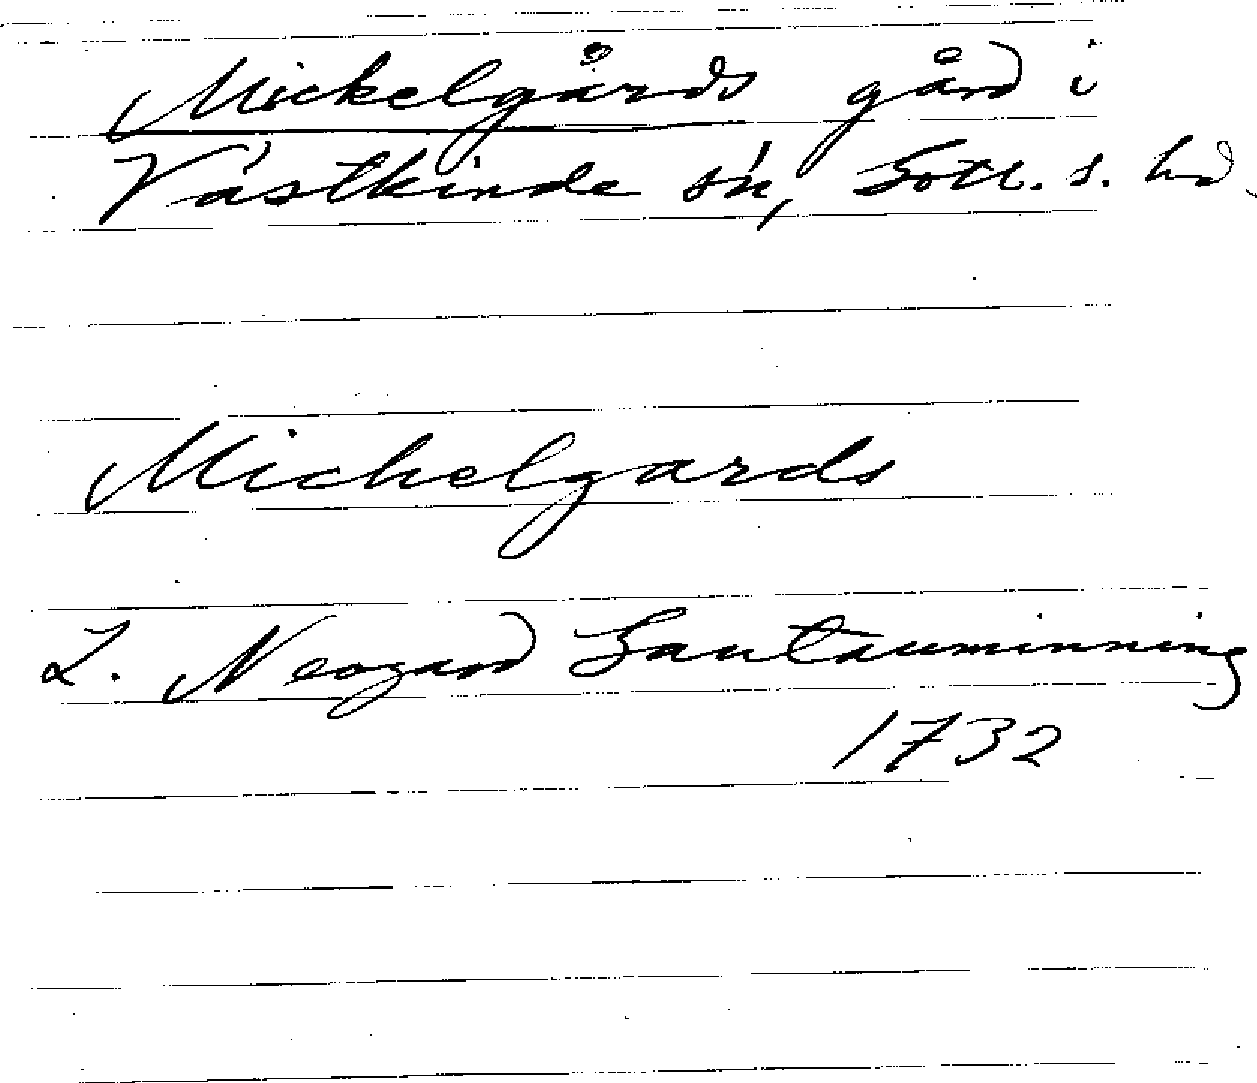 Mickelgårds gård i
Västkinde sn, Gotl. s. hd.
Michelgards
L. Neogard Gautauminning
1732